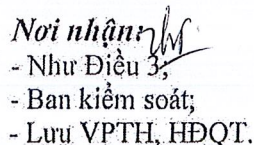 Nơi nhận:
- Như Điều 3;
- Ban kiểm soát;
- Lưu VPTH, HĐQT.